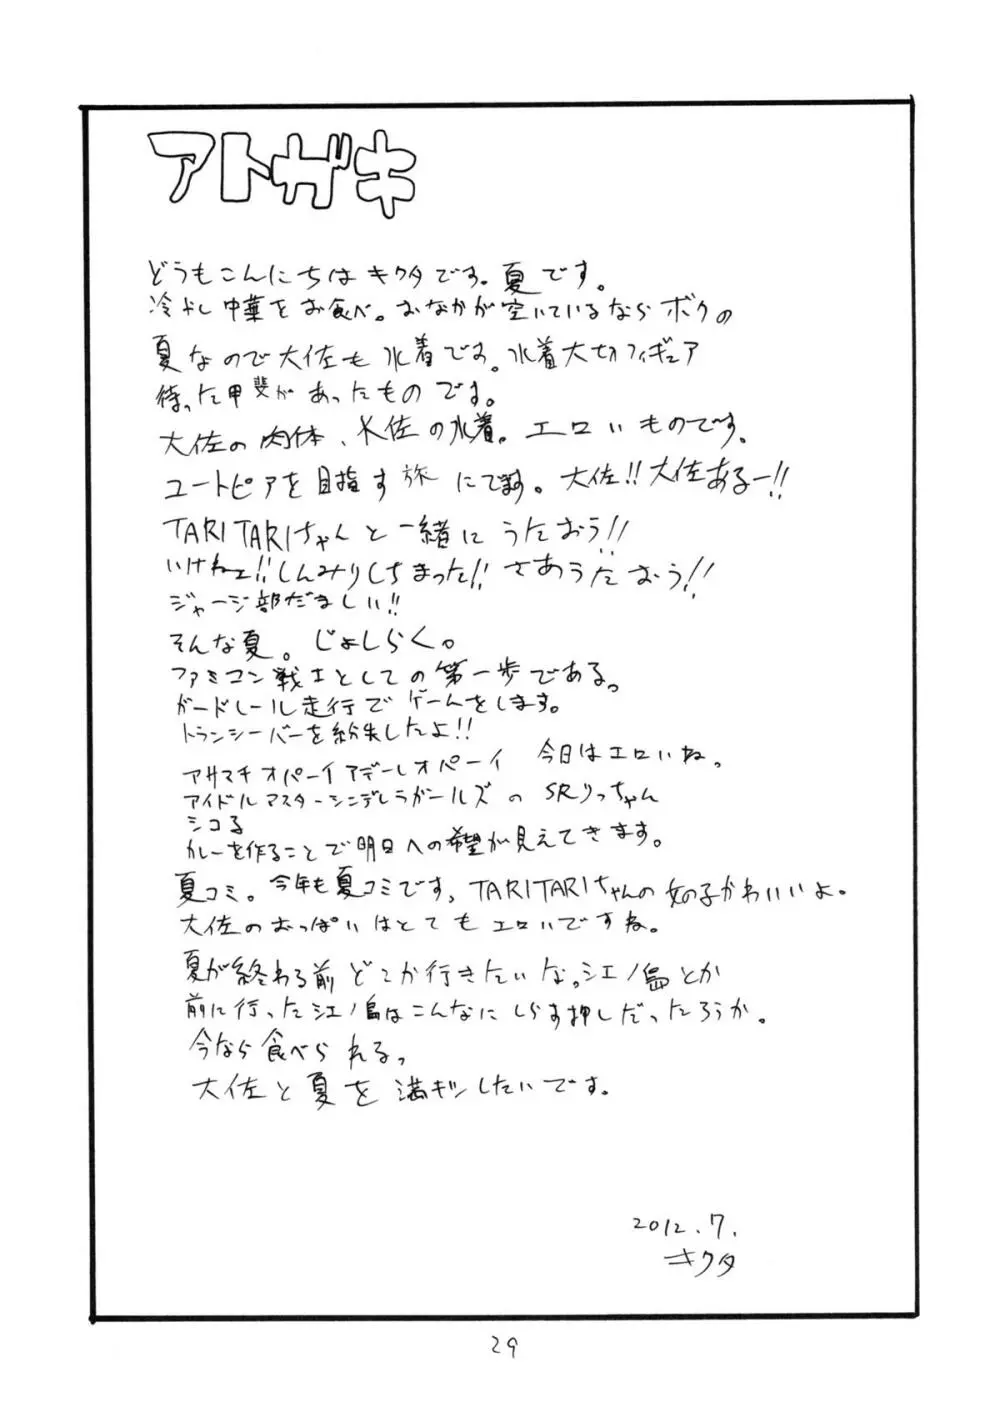 アトガキ
どうもこんにちはキクタです。夏です。
冷やし中華をお食べ。おなかが空いているならボクの
夏なので大佐も水着です。水着大切フィギュア
待った甲斐があったものです。
大佐の肉体、大佐の水着。エロいものです。
ユートピアを目指す旅にでます。大佐!!大佐あるー!!
TARI TARIちゃんと一緒にうたおう!!
いけねェ!!しんみりしちまった!!さあうたおう!!
ジャージ部だましい!!
そんな夏。じょしらく。
ファミコン戦士としての第一歩である。
ガードレール走行でゲームをします。
トランシーバーを紛失したよ!!
アサマキオパーイアデールオパーイ 今日はエロいね。
アイドルマスターシンデレラガールズの SRりっちゃん
シコる
カレーを作ることで明日への希望が見えてきます。
夏コミ。今年も夏コミです。TARITARIちゃんの女の子かわいいよ。
大佐のおっぱいはとてもエロいですね。
夏が終わる前どこか行きたいな。江ノ島とか
前に行った江ノ島はこんなにしらす押しだったろうか。
今なら食べられる。
大佐と夏を満キツしたいです。
2012.7.
キクタ
29